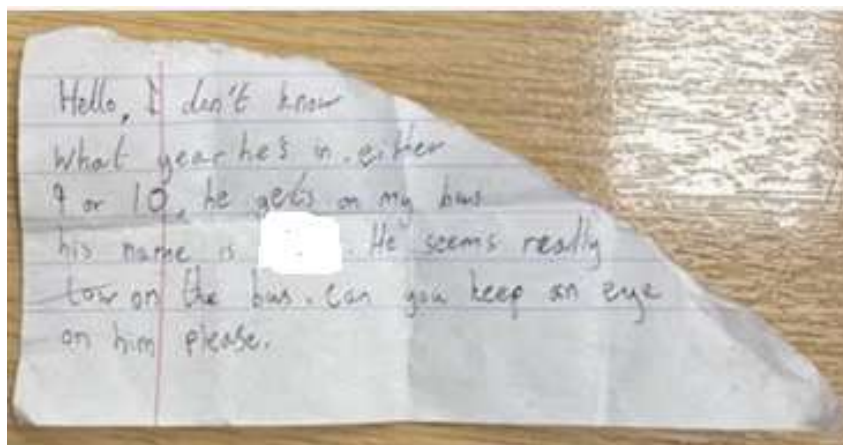 Hello, I don't know
what year he's in. either
9 or 10, he gets on my bus
his name is . He seems really
low on the bus. Can you keep an eye
on him please.